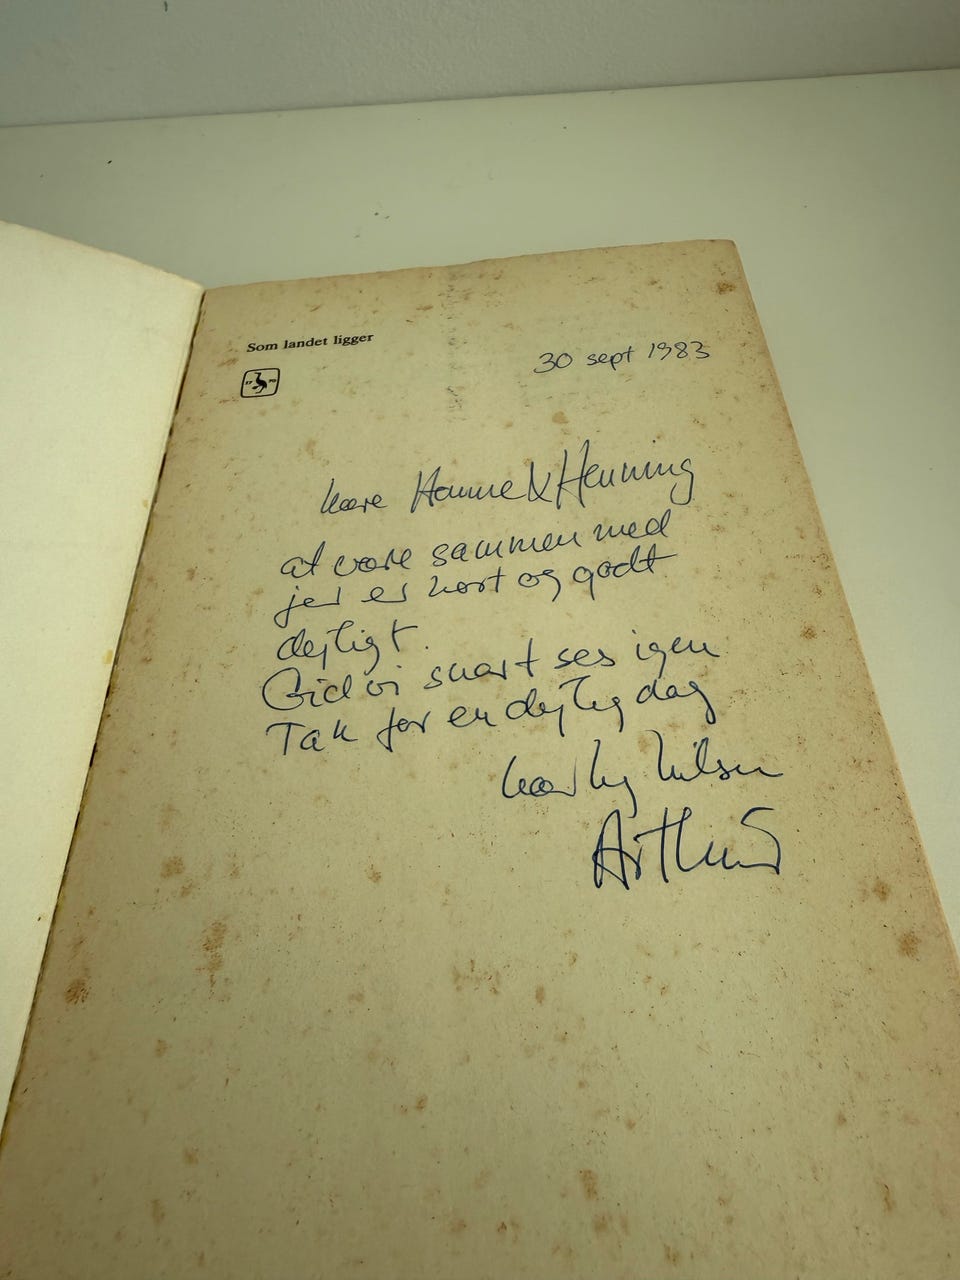 Som landet ligger
17 70
30 sept 1983
kære Hanne & Henning
at være sammen med
jer er kort og godt
dejligt.
Gid vi snart ses igen
Tak for en dejlig dag
kærlig hilsen
Arthur